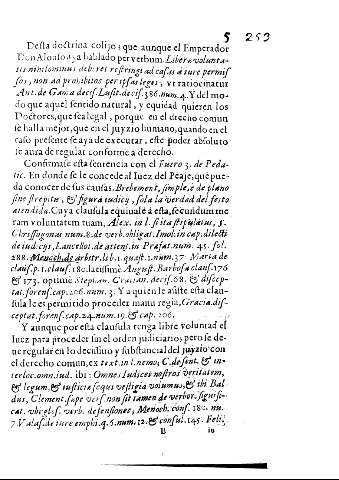 5 253
Desta doctrina colijo; que aunque el Emperador
Don Alonso aya hablado per verbum. Libera volunta-
tis nihilominus deberes restringi ad casus à iure permis
sos, non ad prohibitos per ipsas leges, vt ratiocinatur
Ant. de Gama decis. Lusit. decis. 386. num. 4. Y del mo-
do que aquel sentido natural, y equidad quieren los
Doctores, que sea legal, porque en el drecho comun
se halla mejor, que en el juyzio humano, quando en el
caso presente se aya de executar, este poder absoluto
se aura de regular conforme a derecho.
Confirmase esta sentencia con el Fuero 3. de Peda-
tic. En donde se le concede al Iuez del Peaje, què pue-
da conocer de sus causas. Brebement, simple, è de plano
sine strepitu, & figura iudicij, sola la verdad del feito
atendida. Cuya clausula equiuale à esta, secundum me
ram voluntatem tuam, Alex. in l. si ita stipulatus, §.
Chrisogonus num. 8. de verb. obligat. Imol. in cap. dilecti
de iudicijs, Lancellot. de attent. in Præfat. num. 45. fol.
288. Menoch. de arbitr. lib. 1. quæst. 1. num. 37. Maria de
clausf. p. 1. clausf. 180. latissimè August. Barbosa clausf. 176
& 173. optimè Stephan. Gratian. decis. 68. & discep-
tat. forens. cap. 206. num. 3. Y a quien le assiste esta clau-
sula le es permitido proceder manu regia, Gracia. dis-
ceptat. forens. cap. 24. num. 19. & cap. 106.
Y aunque por esta clausula tenga libre voluntad el
Iuez para proceder sin el orden judiciario; pero se de-
ue regular en lo decissiuo y substancial del juyzio con
el derecho comun, ex text. in l. nemo, C. de sent. & in-
terloc. omn. iud. ibi: Omnes Iudices nostros veritatem,
& legum, & iustitiæ sequi vestigia volumus, & ibi Bal
dus, Clement. sæpe vers. non sit tamen de verbor. signifi-
cat. vbi glos. verb. defensiones, Menoch. cons. 180. nu.
7. Valas. de iure emphi. q. 6. num. 12. & consul. 145. Felij.
B in